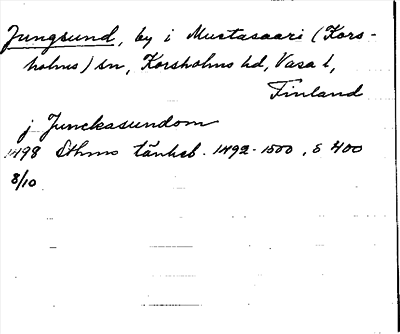 Jungsund, by i Mustasaari (Kors-
holms) sn, Korsholms hd, Vasa l,
Finland
j Junckasundom
1498 Sthms tänkeb. 1492-1500, s 400
8/10